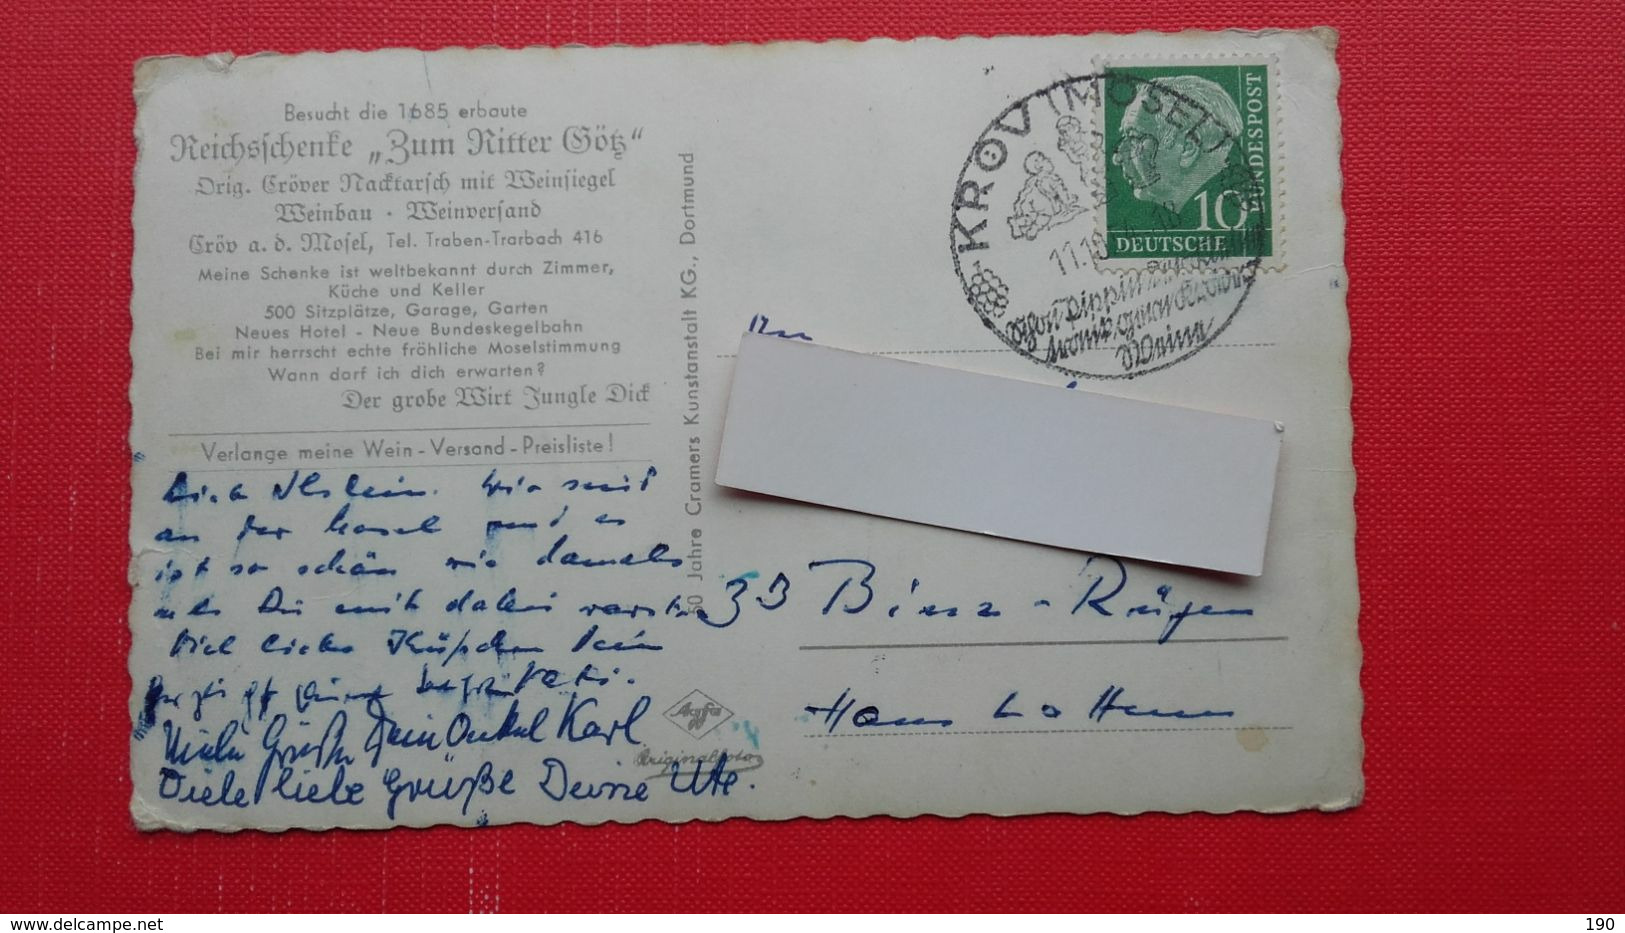 Besucht die 1685 erbaute
Reichsschenke „Zum Ritter Götz“
Orig. Cröver Nacktarsch mit Weinsiegel
Weinbau · Weinversand
Cröv a. d. Mosel, Tel. Traben-Trarbach 416
Meine Schenke ist weltbekannt durch Zimmer,
Küche und Keller
500 Sitzplätze, Garage, Garten
Neues Hotel - Neue Bundeskegelbahn
Bei mir herrscht echte fröhliche Moselstimmung
Wann darf ich dich erwarten?
Der grobe Wirt Jungle Dick
Verlange meine Wein - Versand - Preisliste!
wir sind
an der Mosel und es
ist so schön wie damals
als Du mit dabei warst.
Viel liebe Küßchen Dein
Vati.
Viele Grüße Dein Onkel Karl
Viele liebe Grüße Deine Ute.
50 Jahre Cramers Kunstanstalt KG., Dortmund
Agfa
Originalfoto
KRÖV (MOSEL)
11.10
Schon Pippin
DEUTSCHE
BUNDESPOST
10
3B Binz - Rügen
Haus
delcampe.net
pero5372
190